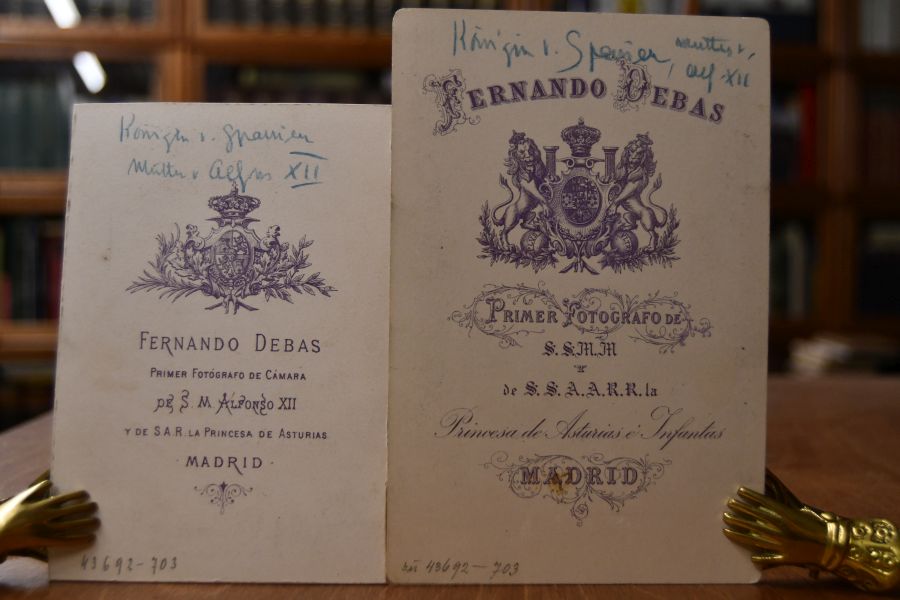 Königin v. Spanien
Mutter v. Alfons XII
FERNANDO DEBAS
PRIMER FOTÓGRAFO DE CÁMARA
DE S. M. ALFONSO XII
Y DE S.A.R. LA PRINCESA DE ASTURIAS
MADRID
43692-703
Königin v. Spanien, Mutter v.
Alf XII
FERNANDO DEBAS
PRIMER FOTOGRAFO DE
S.S.M.M
Y
de S.S.A.A.R.R. la
Princesa de Asturias é Infantas
MADRID
43692-703